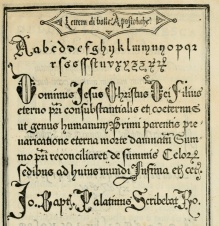 Lettera di bolle Apostoliche
A a b c d e f g h y k l m m n y o p q r
r s s s s t u v x y z z
Dominus Jesus Christus Dei Filius
eterno pri consubstantialis et coeternus
ut genus humanum Primi parentis pre
uaricatione eterna morte damnatu Sum
mo pri reconciliaret de summis Celor
sedibus ad huius mundi Infima et cet.
Jo. Bapt. Palatinus Scribebat Ro.